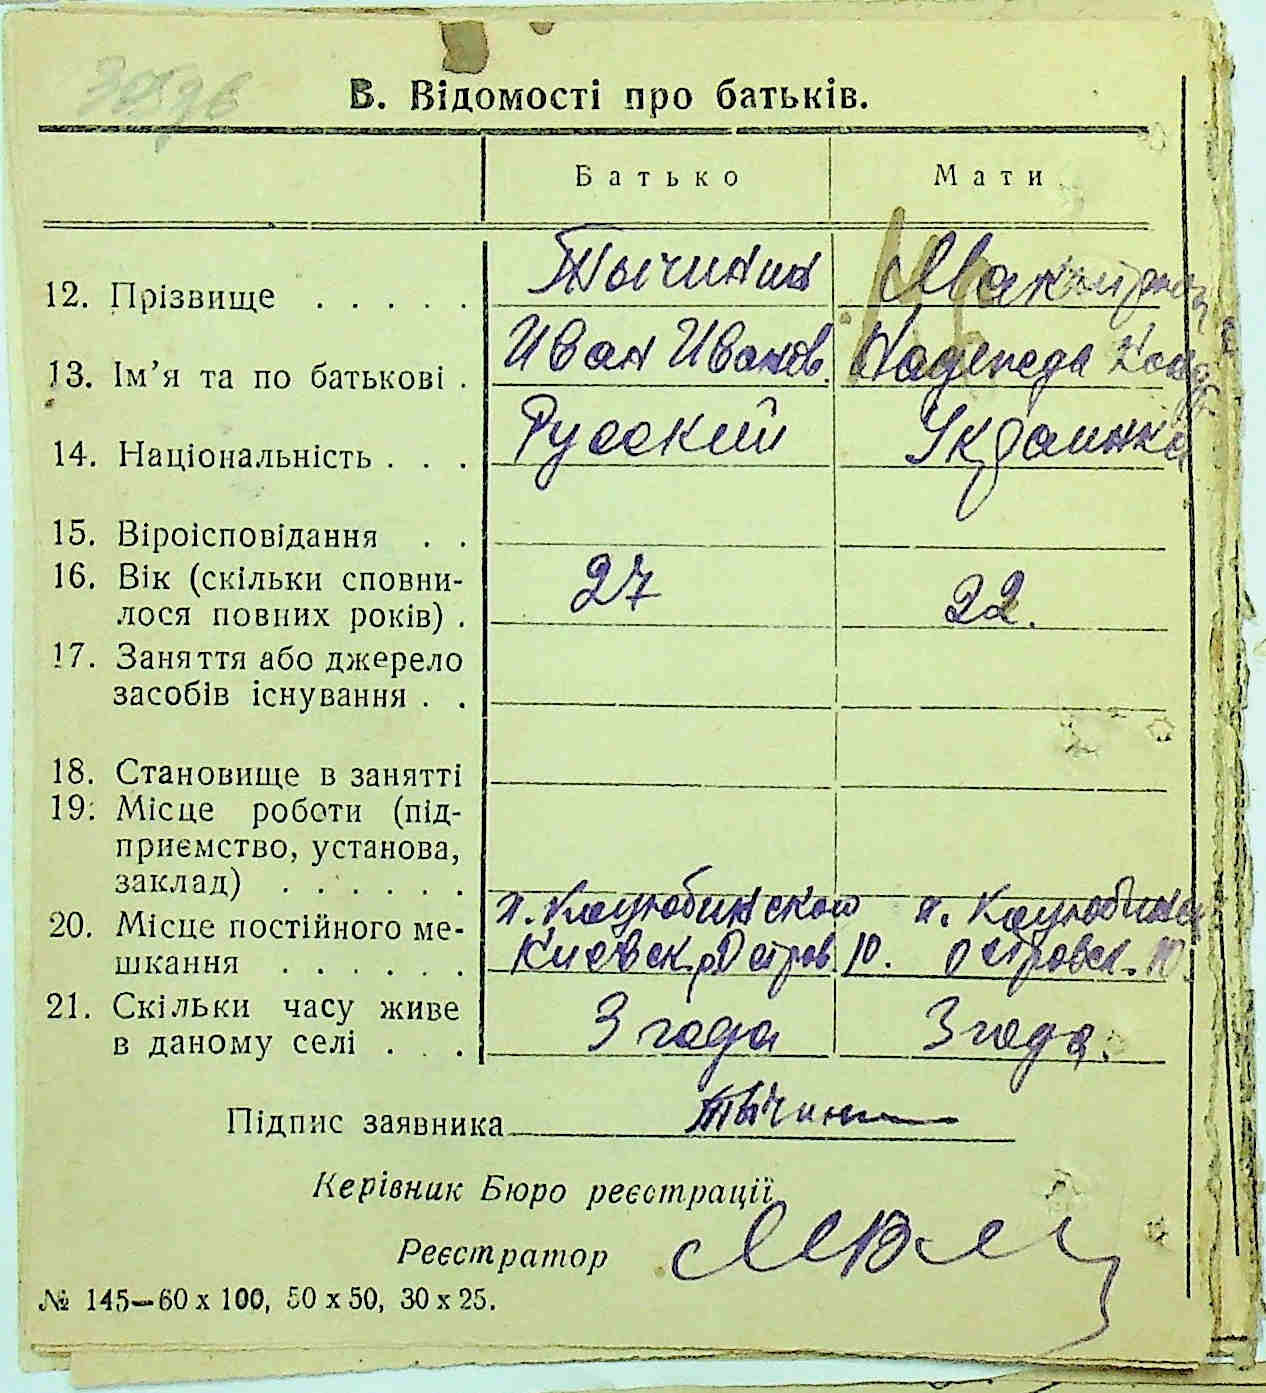 В. Відомості про батьків.
Батько Мати
12. Прізвище . . . . . Тычинин
13. Ім’я та по батькові . Иван Иванов. Надежда Конд
14. Національність . . . Русский Украинка
15. Віроісповідання . .
16. Вік (скільки сповни-
лося повних років) . 27 22.
17. Заняття або джерело
засобів існування . .
18. Становище в занятті
19. Місце роботи (під-
приємство, установа,
заклад) . . . . . .
20. Місце постійного ме-
шкання . . . . . . Островск. 10.
21. Скільки часу живе
в даному селі . . . 3 года 3 года.
Підпис заявника Тычинин
Керівник Бюро реєстрації
Реєстратор
№ 145—60 х 100, 50 х 50, 30 х 25.